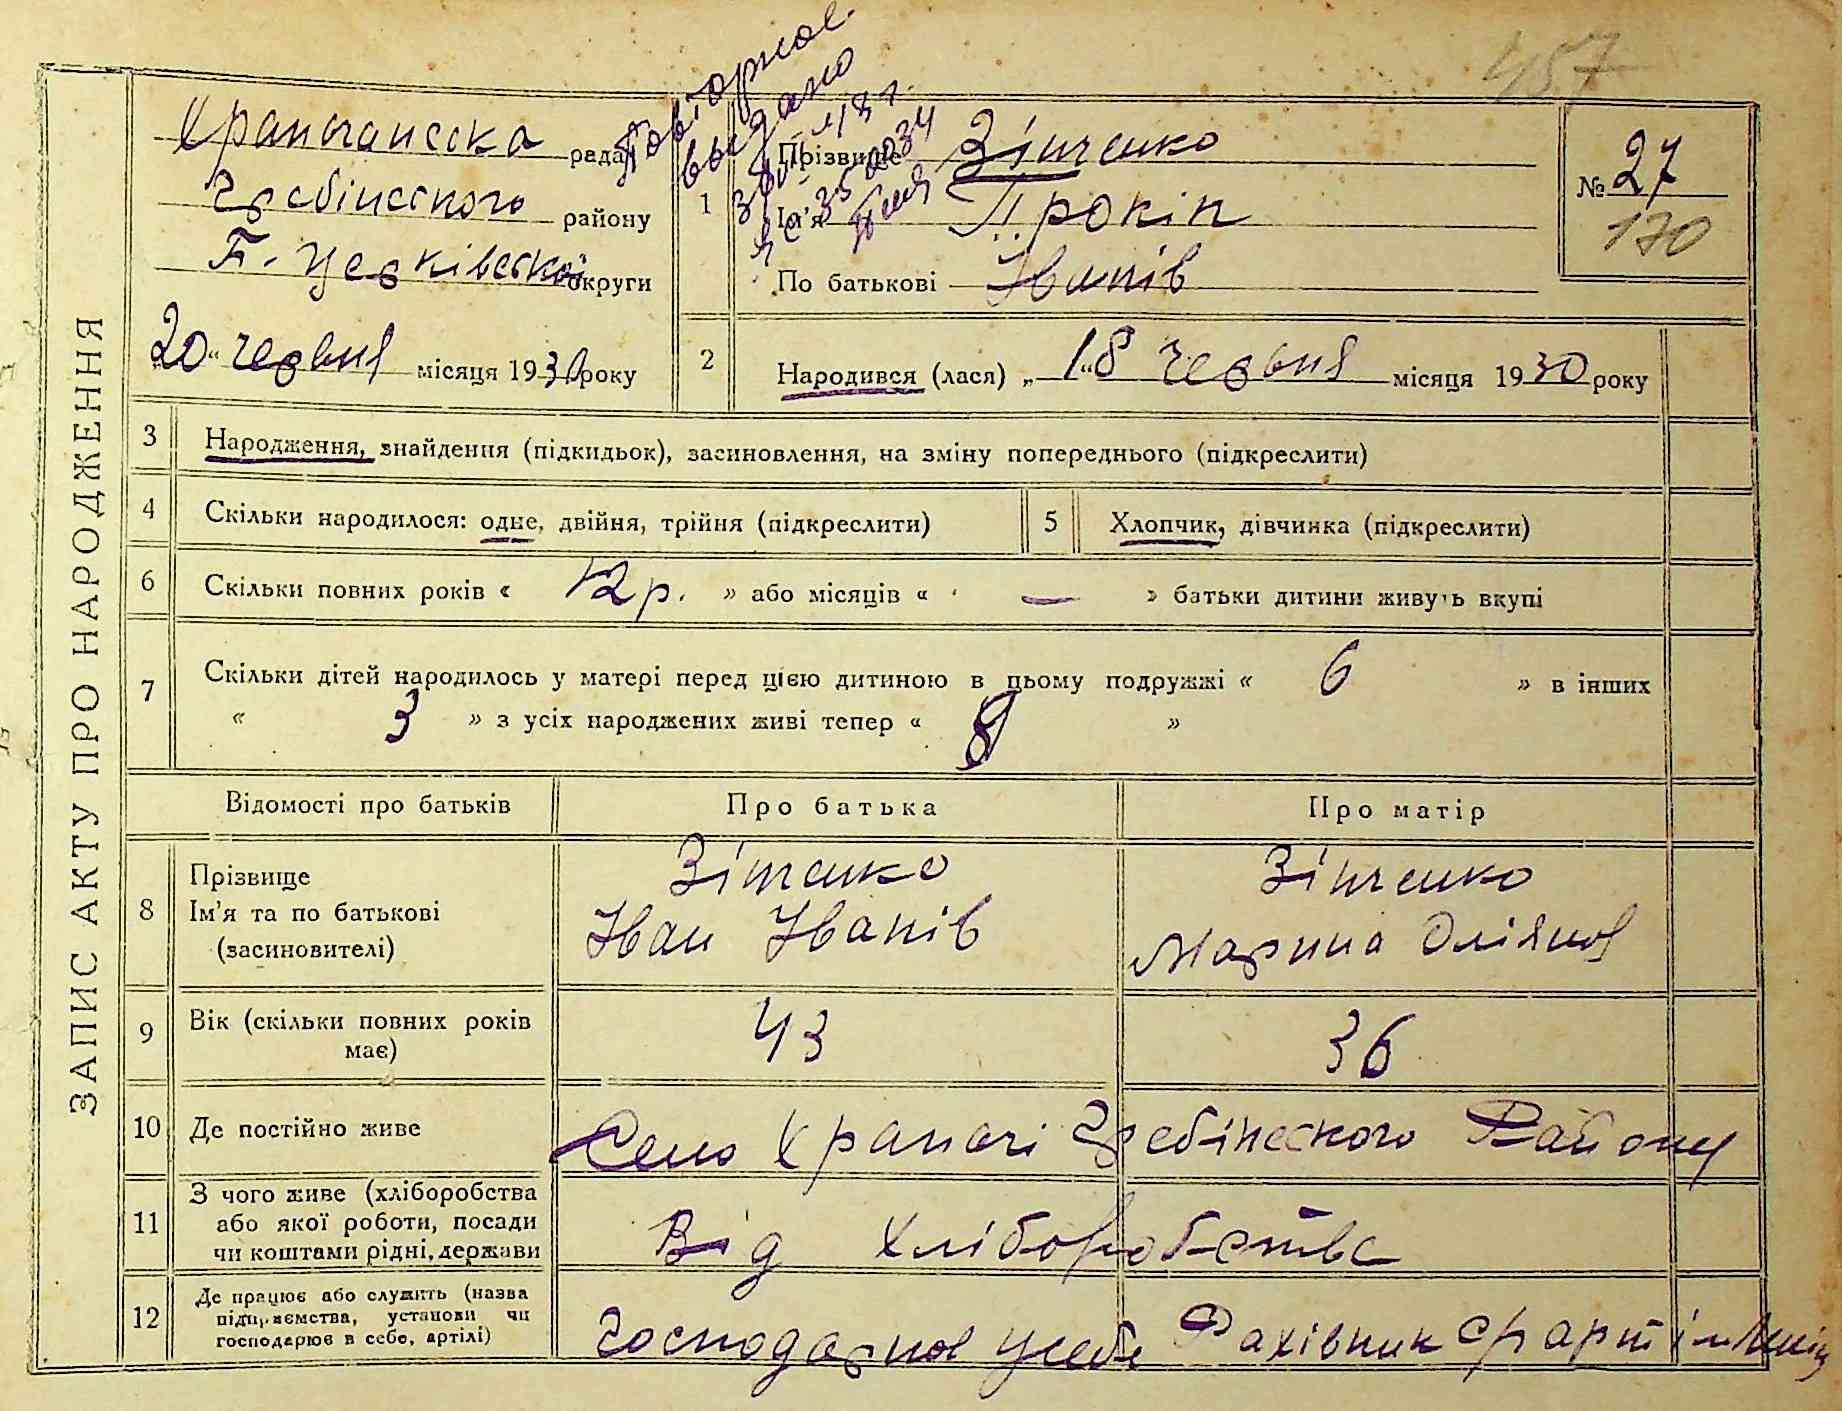 457
ЗАПИС АКТУ ПРО НАРОДЖЕННЯ
Храпачанська рада
Гребінського району
Б.-Церківської округи
20 червня місяця 1930 року
Повіторное
выдано
1 Прізвище Зінченко
Ім'я Прокіп
По батькові Іванів
№ 27
170
2 Народився (лася) „18" червня місяця 1930 року
3 Народження, знайдення (підкидьок), засиновлення, на зміну попереднього (підкреслити)
4 Скільки народилося: одне, двійня, трійня (підкреслити)
5 Хлопчик, дівчинка (підкреслити)
6 Скільки повних років « 12 р. » або місяців « — » батьки дитини живуть вкупі
7 Скільки дітей народилось у матері перед цією дитиною в цьому подружжі « 6 » в інших
« 3 » з усіх народжених живі тепер « »
Відомості про батьків Про батька Про матір
8 Прізвище
Ім'я та по батькові
(засиновителі)
Зінченко
Іван Іванів
Зінченко
Марина
9 Вік (скільки повних років
має)
43 36
10 Де постійно живе Село Храпачі Гребінського Району
11 З чого живе (хліборобства
або якої роботи, посади
чи коштами рідні, держави
Від хліборобства
12 Де працює або служить (назва
підприємства, установи чи
господарює в себе, артілі)